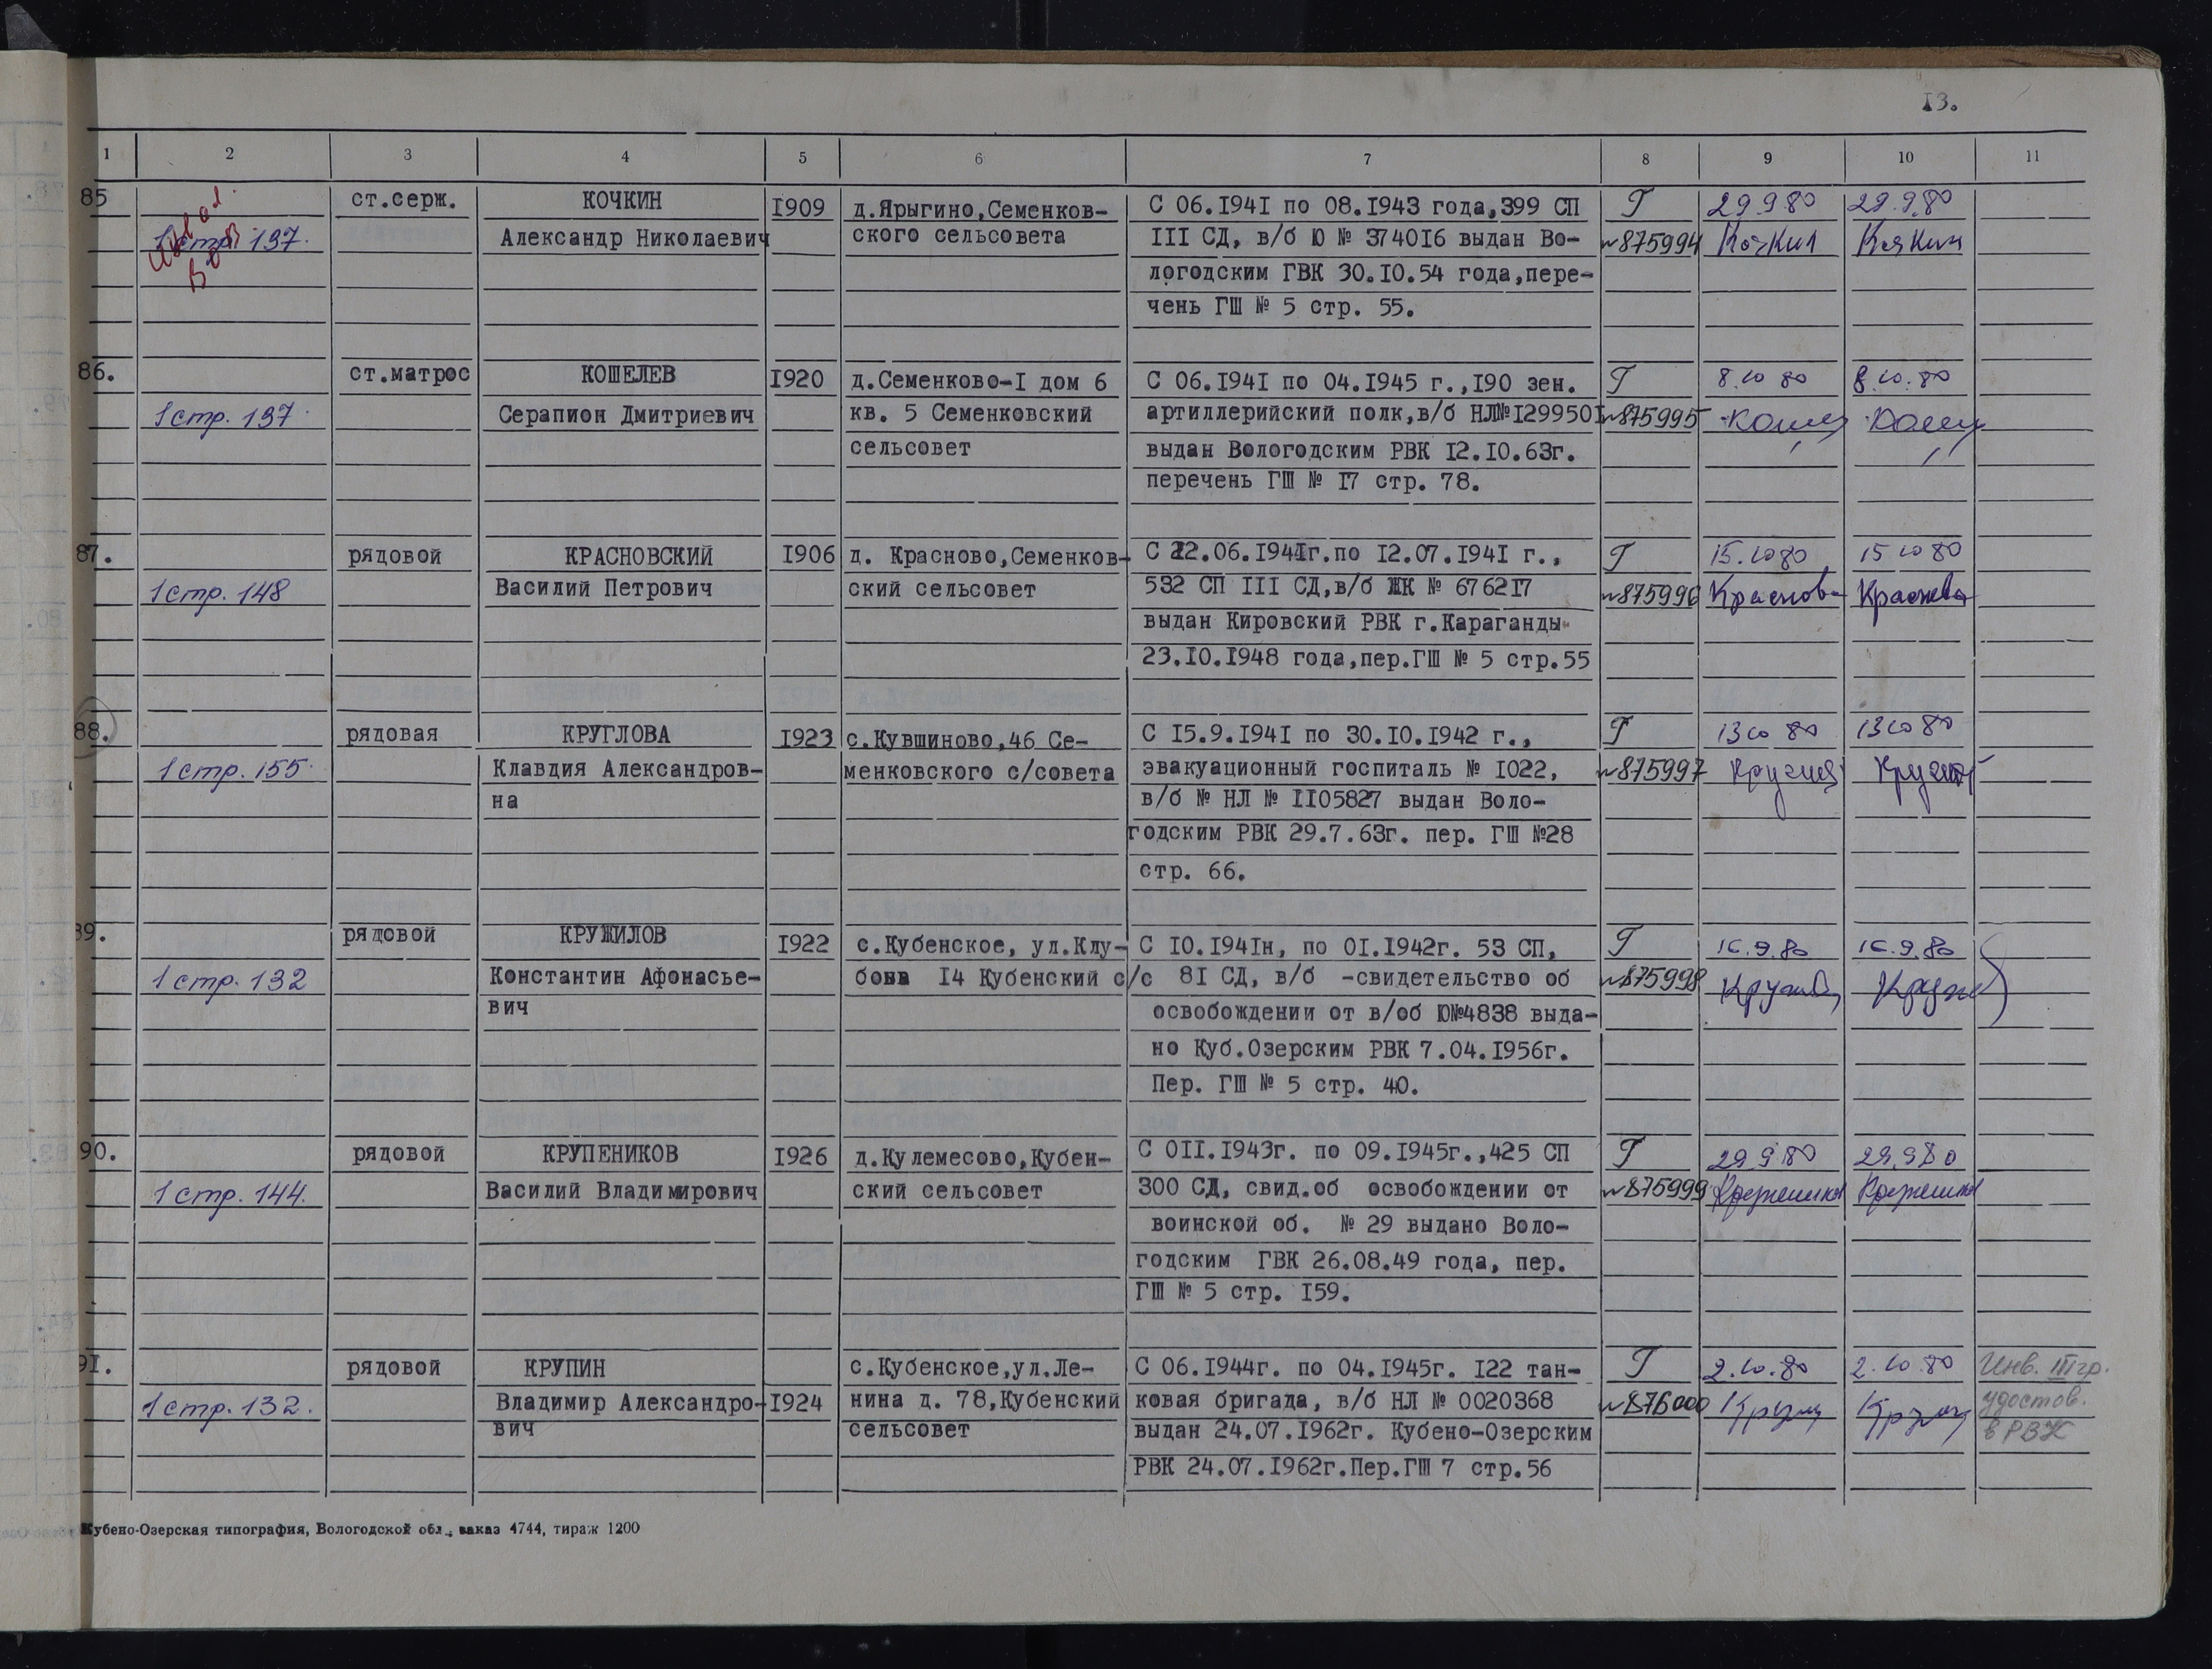 13.
1 2 3 4 5 6 7 8 9 10 11
85 ст.серж. КОЧКИН 1909 д.Ярыгино,Семенков- С 06.1941 по 08.1943 года,399 СП Т 29 9 80 29.9.80
1 стр. 137. Александр Николаевич ского сельсовета III СД, в/б Ю № 374016 выдан Во- №875994 Кочкин Кочкин
логодским ГВК 30.10.54 года,пере-
чень ГШ № 5 стр. 55.
86. ст.матрос КОШЕЛЕВ 1920 д.Семенково-I дом 6 С 06.1941 по 04.1945 г.,190 зен. Т 8.10 80 8.10.80
1 стр. 137. Серапион Дмитриевич кв. 5 Семенковский артиллерийский полк,в/б НЛ№1299501 №875995
сельсовет выдан Вологодским РВК 12.10.63г.
перечень ГШ № 17 стр. 78.
87. рядовой КРАСНОВСКИЙ 1906 д. Красново,Семенков- С 22.06.1941г.по 12.07.1941 г., Т 15.10 80 15 10 80
1 стр. 148 Василий Петрович ский сельсовет 532 СП III СД,в/б ЖК № 676217 №875996
выдан Кировский РВК г.Караганды
23.10.1948 года,пер.ГШ № 5 стр.55
88. рядовая КРУГЛОВА 1923 с.Кувшиново,46 Се- С 15.9.1941 по 30.10.1942 г., Т 13 10 80 13 10 80
1 стр. 155. Клавдия Александров- менковского с/совета эвакуационный госпиталь № 1022, №875997
на в/б № НЛ № 1105827 выдан Воло-
годским РВК 29.7.63г. пер. ГШ №28
стр. 66.
89. рядовой КРУЖИЛОВ 1922 с.Кубенское, ул.Клу- С 10.1941н, по 01.1942г. 53 СП, Т 16.9.80 16.9.80
1 стр. 132 Константин Афонасье- бова 14 Кубенский с/с 81 СД, в/б -свидетельство об №875998
вич освобождении от в/об Ю№4838 выда-
но Куб.Озерским РВК 7.04.1956г.
Пер. ГШ № 5 стр. 40.
90. рядовой КРУПЕНИКОВ 1926 д.Кулемесово,Кубен- С 011.1943г. по 09.1945г.,425 СП Т 29 9 80 29.9 80
1 стр. 144. Василий Владимирович ский сельсовет 300 СД, свид.об освобождении от №875999
воинской об. № 29 выдано Воло-
годским ГВК 26.08.49 года, пер.
ГШ № 5 стр. 159.
91. рядовой КРУПИН с.Кубенское,ул.Ле- С 06.1944г. по 04.1945г. 122 тан- Т 2.10.80 2.10.80 Инв. III гр.
1 стр. 132. Владимир Александро- 1924 нина д. 78,Кубенский ковая бригада, в/б НЛ № 0020368 №876000 удостов.
вич сельсовет выдан 24.07.1962г. Кубено-Озерским в РВК
РВК 24.07.1962г.Пер.ГШ 7 стр.56
Кубено-Озерская типография, Вологодской обл., заказ 4744, тираж 1200